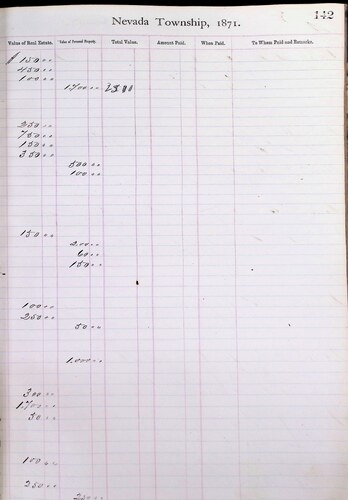 142
Nevada Township, 1871.
Value of Real Estate. Value of Personal Property. Total Value. Amount Paid. When Paid. To Whom Paid and Remarks.
150 00
450 00
100 00
1700 00
250 00
750 00
150 00
350 00
500 00
100 00
150 00
200 00
60 00
150 00
100 00
250 00
50 00
1,000 00
300 00
1700 00
50 00
100 00
250 00